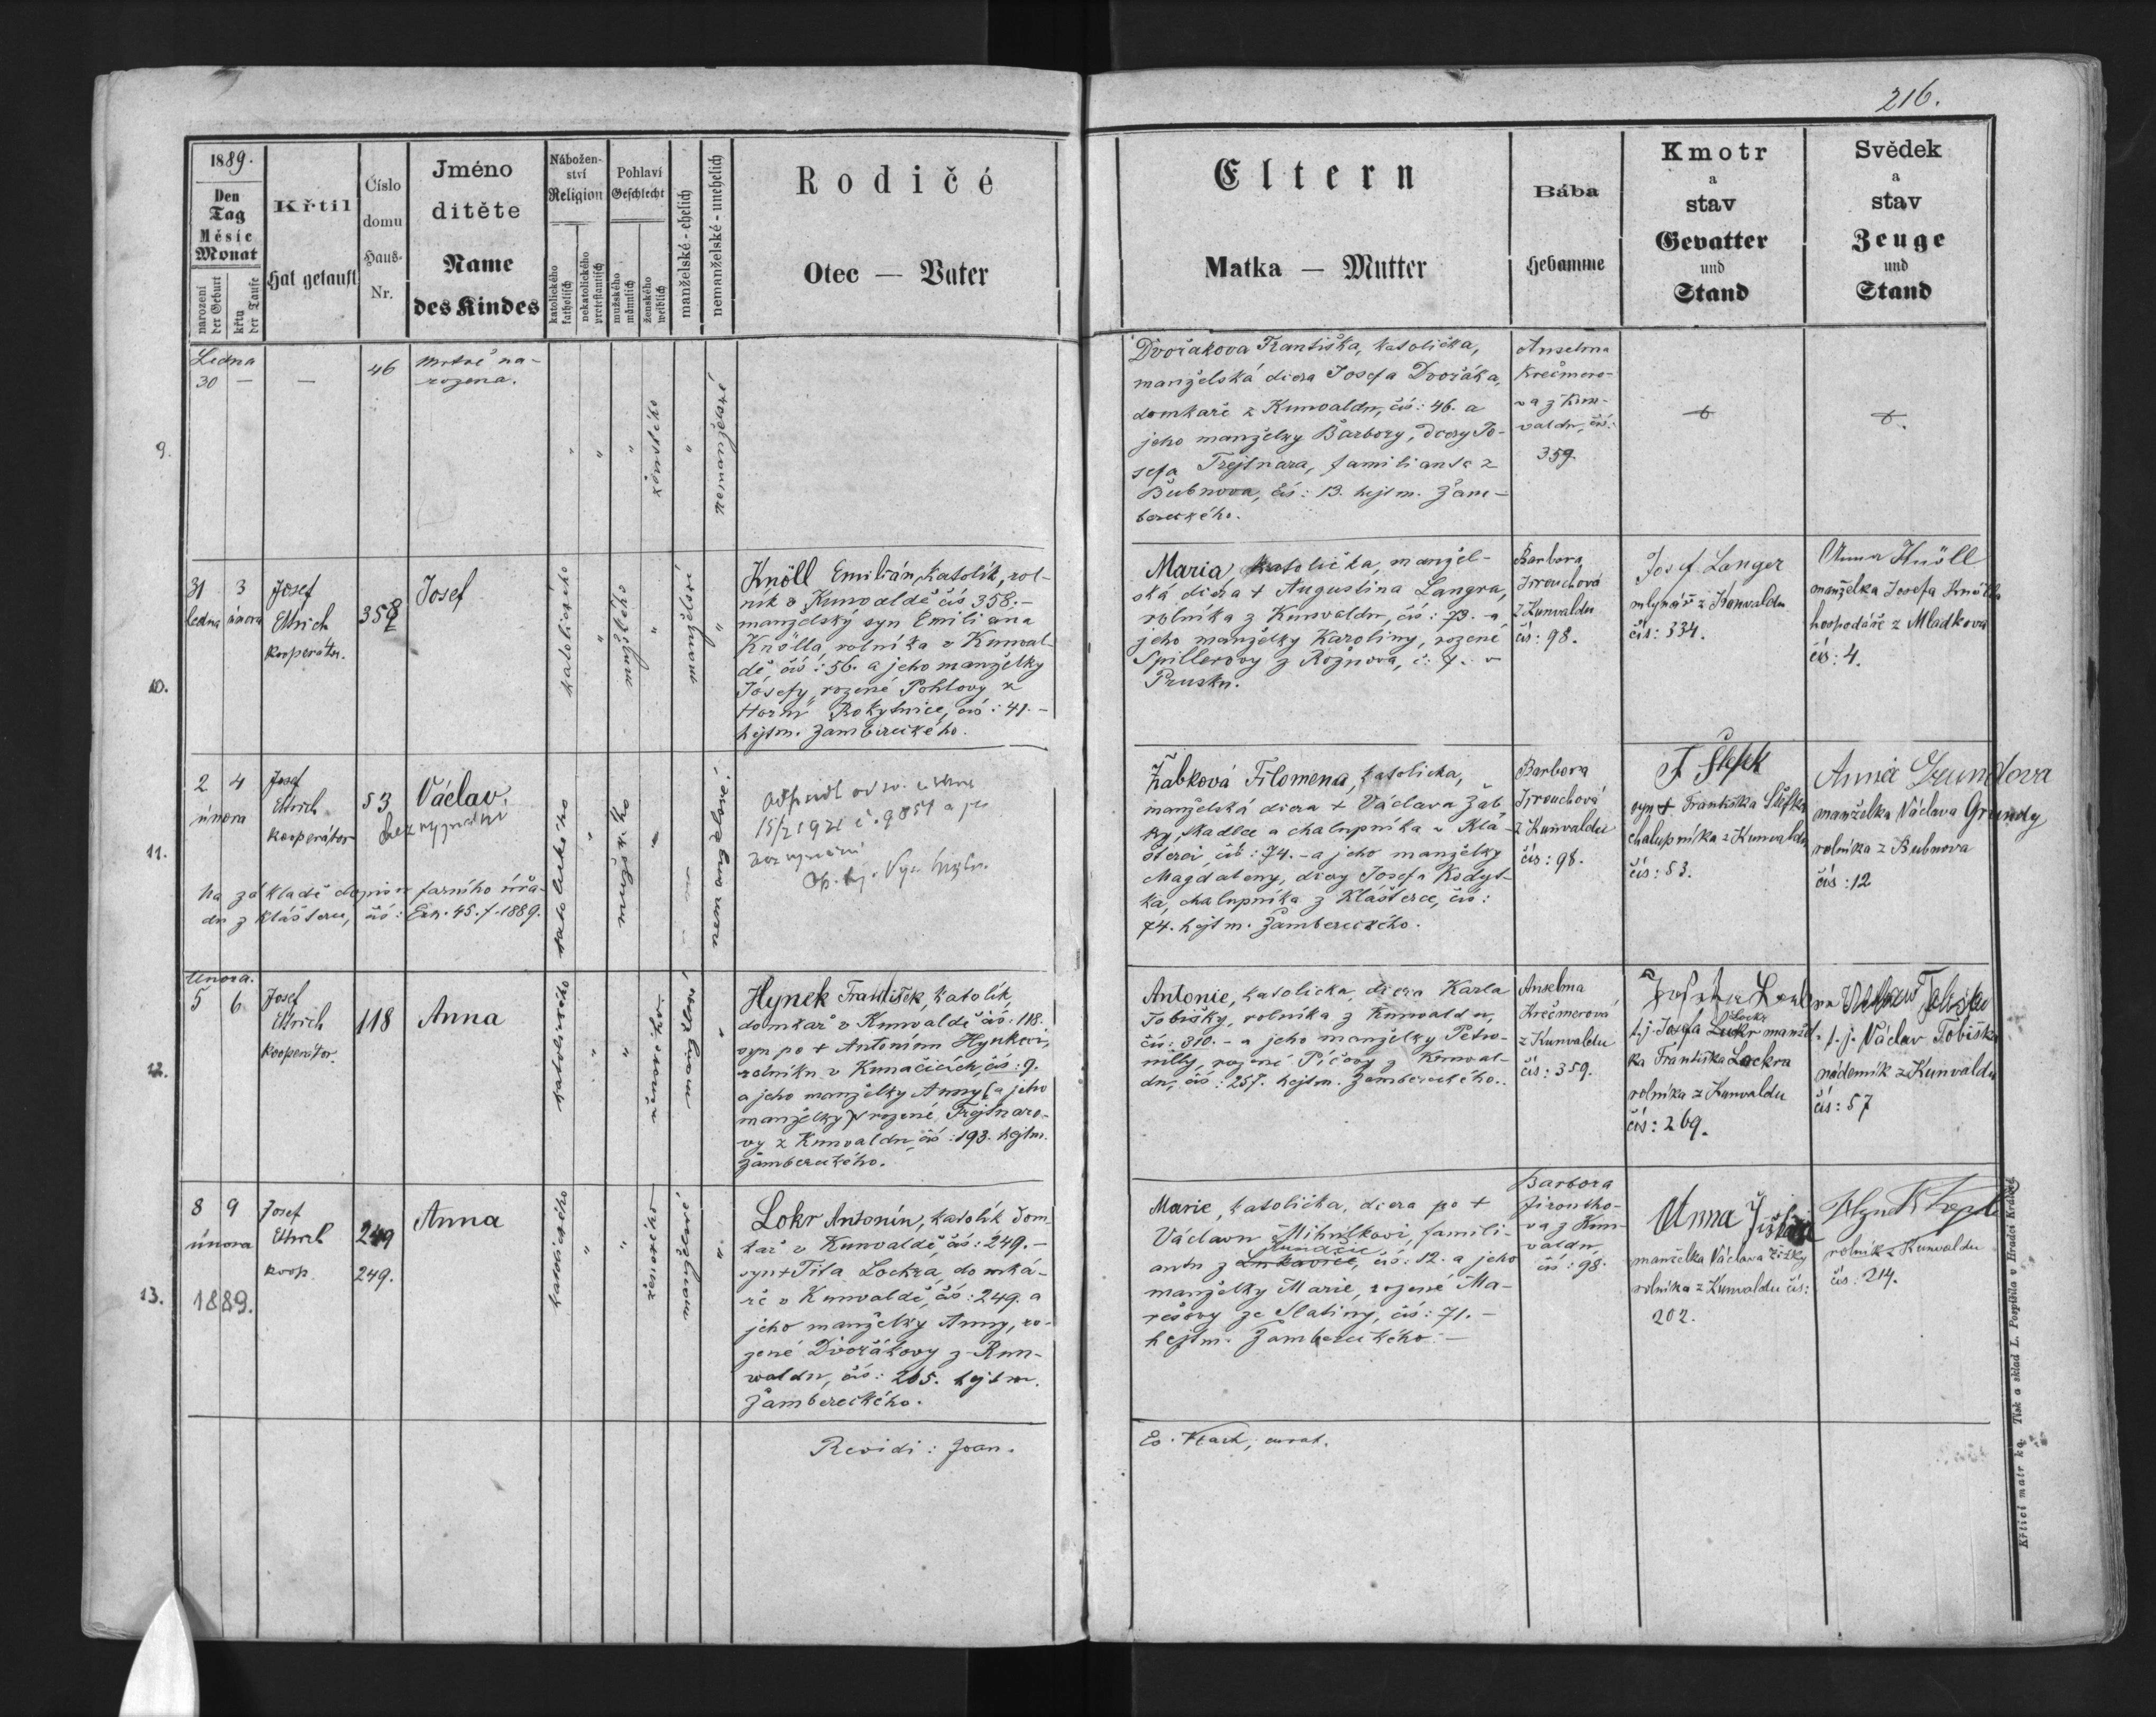 216.
1889.
Den
Tag
Měsíc
Monat
narození
der Geburt
křtu
der Taufe
Křtil
Hat getauft
Číslo
domu
Haus-
Nr.
Jméno
dítěte
Name
des Kindes
Nábožen-
ství
Religion
katolického
katholisch
nekatolického
protestantisch
Pohlaví
Geschlecht
mužského
männlich
ženského
weiblich
manželské - ehelich
nemanželské - unehelich
Rodičé
Otec — Vater
Eltern
Matka — Mutter
Bába
Hebamme
Kmotr
a
stav
Gevatter
und
Stand
Svědek
a
stav
Zeuge
und
Stand
9.
Ledna
30 — —
46
Mrtvě na-
rozena.
ženského
nemanželské
Dvořakova Františka, katolička,
manželská dcera Josefa Dvořáka,
domkaře z Kunvaldu, čís: 46. a
jeho manželky Barbory, dcery Jo-
sefa Trejtnara, familianta z
Bubnova, čís: 13. hejtm. Žam-
bereckého.
Anselma
Krečmero-
va z Kun-
valdu, čís:
359.
10.
31 3
ledna února
Josef
Ettrich
kooperátor.
358
Josef
katolického
mužského
manželské
Knöll Emilián, katolík, rol-
ník v Kunvaldě čís 358.-
manželský syn Emiliana
Knölla, rolníka v Kunval-
dě, čís: 56. a jeho manželky
Josefy, rozené Pohlovy z
Horní Rokytnice, čís: 41.-
hejtm. Žambereckého.
Maria, katolička, manžel-
ská dcera + Augustina Langra,
rolníka z Kunvaldu, čís: 73. a
jeho manželky Karoliny, rozené
Spillerovy z Rožnova, č: 7. v
Prusku.
Barbora
Jirouchová
z Kunvaldu
čís: 98.
Josef Langer
mlynář z Kunvaldu
čís: 334.
Anna Knöll
manželka Josefa Knölla
hospodáře z Mladkova
čís: 4.
11.
2 4
února
Josef
Ettrich
kooperátor
53
Václav.
bez vyznání
Na základě dopisu farního úřa-
du z Klášterce, čís: Exh. 45. / 1889.
katolického
mužského
nemanželské.
15/2 1921 č. 9854 a je
bez vyznání
Žabková Filomena, katolička,
manželská dcera + Václava Žab-
ky, tkadlce a chalupníka v Klá-
šterci, čís: 74. - a jeho manželky
Magdaleny, dcery Josefa Kodyt-
ka, chalupníka z Klášterce, čís:
74. hejtm. Žambereckého.
Barbora
Jirouchová
z Kunvaldu
čís: 98.
J Štefek
syn + Františka Štefka
chalupníka z Kunvaldu
čís: 53.
Anna Grundova
manželka Václava Grundy
rolníka z Bubnova
čís: 12
12.
února.
5 6
Josef
Ettrich
kooperátor.
118
Anna
katolického
ženského
manželské
Hynek František, katolík,
domkař v Kunvaldě čís: 118.
syn po + Antonínu Hynkovi,
rolníku v Kunačicích, čís: 9.
a jeho manželky Anny (a jeho
manželky) rozené Trejtnaro-
vy z Kunvaldu čís: 193. hejtm.
Žambereckého.
Antonie, katolička, dcera Karla
Tobišky, rolníka z Kunvaldu,
čís: 310. - a jeho manželky Petro-
nilly, rozené Pičovy z Kunval-
du, čís: 257. hejtm. Žambereckého.
Anselma
Krečmerová
z Kunvaldu
čís: 359.
t. j. Josefa Lockr manžel-
ka Františka Lockra
rolníka z Kunvaldu
čís: 269.
t. j. Václav Tobiška
nádenník z Kunvaldu
čís: 57
13.
8 9
února
1889.
Josef
Ettrich
koop.
249
249.
Anna
katolického
ženského
manželské
Lokr Antonín, katolík dom-
kař v Kunvaldě, čís: 249. -
syn + Tita Lockra, domká-
ře v Kunvaldě, čís: 249. a
jeho manželky Anny, ro-
zené Dvořákovy z Kun-
valdu, čís: 265. hejtm.
Žambereckého.
Marie, katolička, dcera po +
Václavu Mihulkovi, famili-
antu z čís: 12. a jeho
manželky Marie, rozené Ma-
rešovy ze Slatiny, čís: 71. -
hejtm. Žambereckého. -
Barbora
Jiroucho-
va z Kun-
valdu,
čís: 98.
Anna Žižková
manželka Václava Žižky
rolníka z Kunvaldu čís:
202.
rolník z Kunvaldu
čís: 214.
Revidi: Joan.
Ev. Klach, curat.
Křticí matrika. Tisk a sklad L. Pospíšila v Hradci Králové.